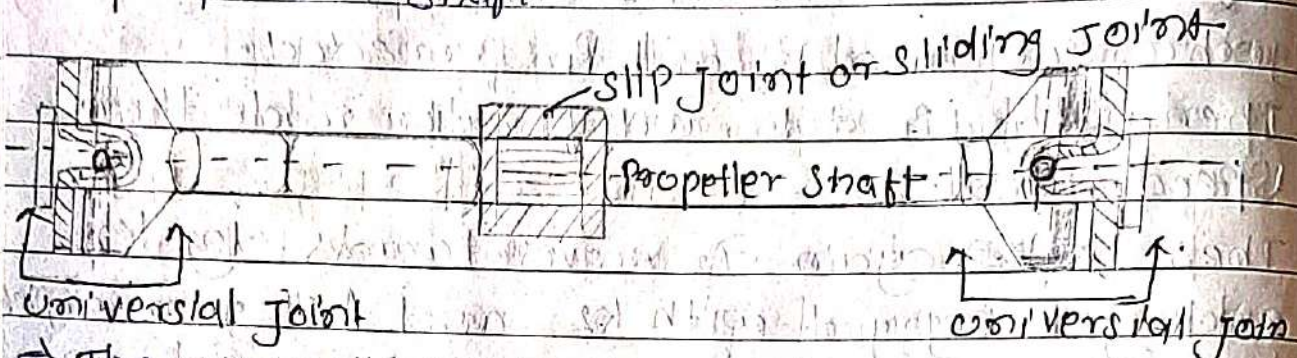 slip joint or sliding Joint
Propeller Shaft
Universial Joint
Universial Join